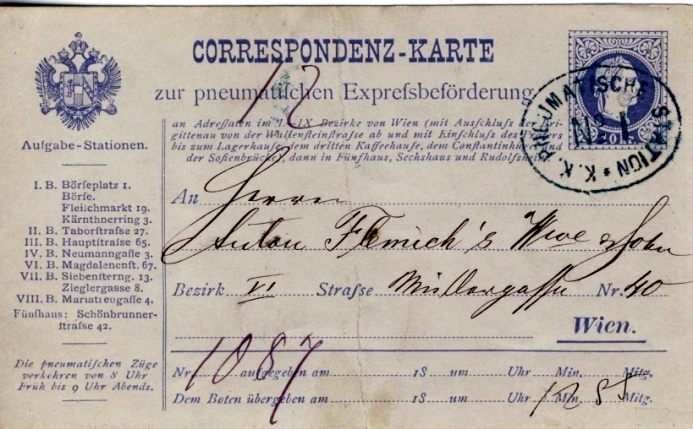 CORRESPONDENZ-KARTE
12
zur pneumatiſchen Expreſsbeförderung
K. K. PNEUMATISCHE STATION
No 1
20 kr.
an Adreſſaten im I.–IX Bezirke von Wien (mit Ausſchluſs der Bri-
gittenau von der Wallenſteinſtraſse ab und mit Einſchluſs des Praters
bis zum Lagerhauſe, dem dritten Kaffeehauſe, dem Conſtantinhügel und
der Sofienbrücke), dann in Fünfhaus, Sechshaus und Rudolfsheim
Aufgabe-Stationen.
I. B. Börſeplatz 1.
Börſe.
Fleiſchmarkt 19.
Kärnthnerring 3.
II. B. Taborſtraſse 27.
III. B. Hauptſtraſse 65.
IV. B. Neumanngaſſe 3.
VI. B. Magdalenenſt. 67.
VII. B. Siebenſterng. 13.
Zieglergasse 8.
VIII. B. Mariatreugaſſe 4.
Fünfhaus: Schönbrunner-
ſtraſse 42.
Die pneumatiſchen Züge
verkehren von 8 Uhr
Früh bis 9 Uhr Abends.
An Herrn
Anton Flemich's Wwe & Sohn
Bezirk VI Straſse Müllergasse Nr. 40
Wien.
1087
Nr. aufgegeben am 18 um Uhr Min. Mitg.
Dem Boten übergeben am 18 um Uhr 12 55 Min. Mitg.